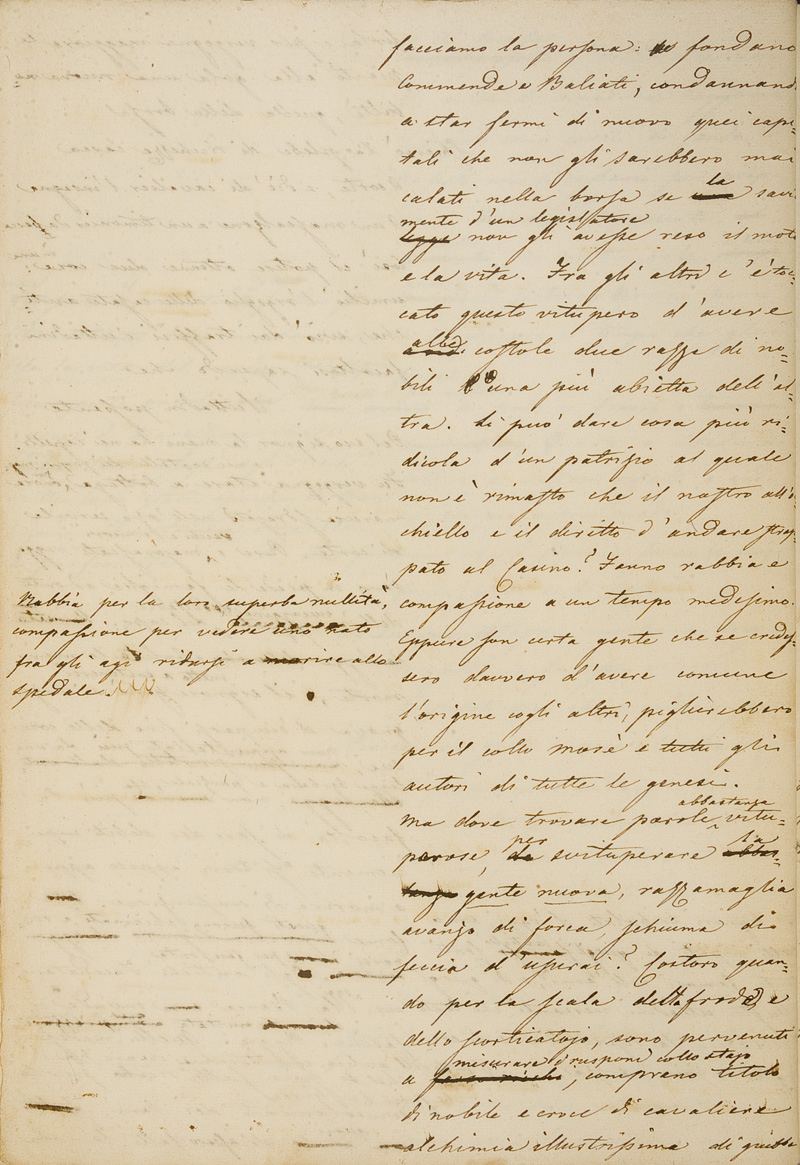 facciamo la persona: si fondano
Commende e Baliati, condannando
a star fermi di nuovo quei capi=
tali che non gli sarebbero mai
calati nella borsa se la savi
mente d'un legislatore
legge non gli avesse reso il moto
e la vita. Fra gli altri c'è toc=
cato questo vitupero d'avere
alle costole due razze di no=
bili l'una più abietta dell'al=
tra. Si può dare cosa più ri=
dicola d'un patrizio al quale
non è rimasto che il nastro all'o=
chiello e il diritto d'andare strap=
pato al Casino? Fanno rabbia e
compassione a un tempo medesimo.
Eppure son certa gente che se credes=
sero davvero d'avere comune
l'origine cogli altri, piglierebbero
per il collo Mosè e tutti gli
autori di tutte le genesi.
Ma dove trovare parole abbastanza vitu=
perose, per svituperare la
gente nuova, razzamaglia
avanzo di forca, schiuma di
feccia d'usurai? Costoro quan=
do per la scala della frode, e
dello scorticatojo, sono pervenuti
a misurare i rusponi collo stajo,
comprano titolo
di nobile e croce di cavaliere
alchimia illustrissima di
Rabbia per la loro superba nullità,
compassione per vedere uno nato
fra gli agi ridursi a morire allo
spedale.